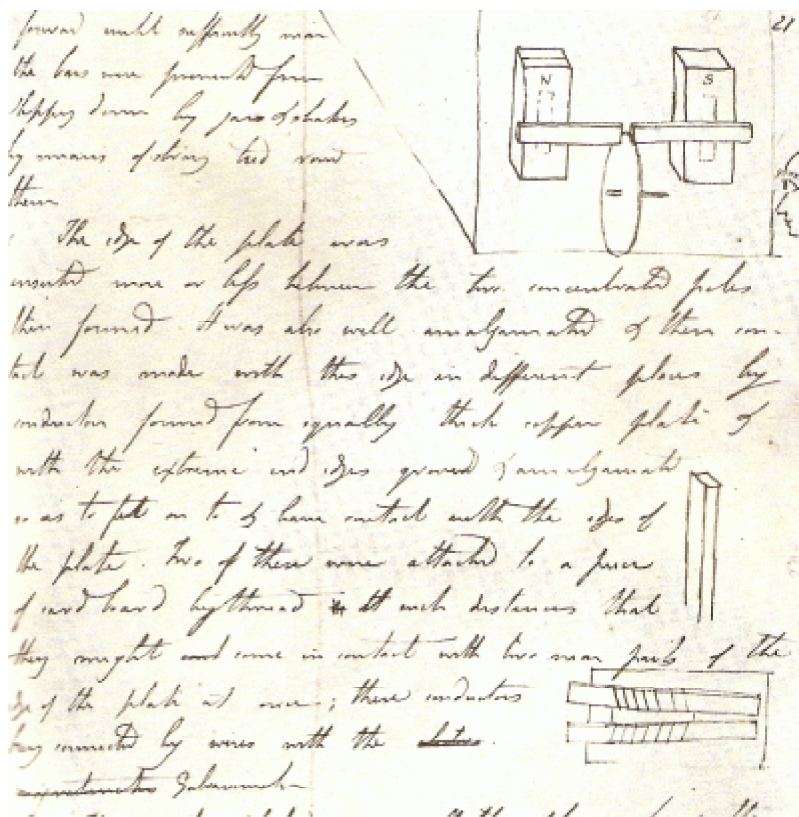 forward until sufficiently near
the bars were prevented from
slipping down by jars & shakes
by means of string tied round
them
21
N
S
The edge of the plate was
inserted more or less between the two concentrated poles
thus formed. It was also well amalgamated & then con-
tact was made with this edge in different places by
conductors formed from equally thick copper plate &
with the extreme end edges grooved & amalgamated
so as to fit on to & have contact with the edges of
the plate. Two of these were attached to a piece
of card board by thread at such distances that
they might come in contact with two near parts of the
edge of the plate at once; these conductors
being connected by wires with the
Galvanometer